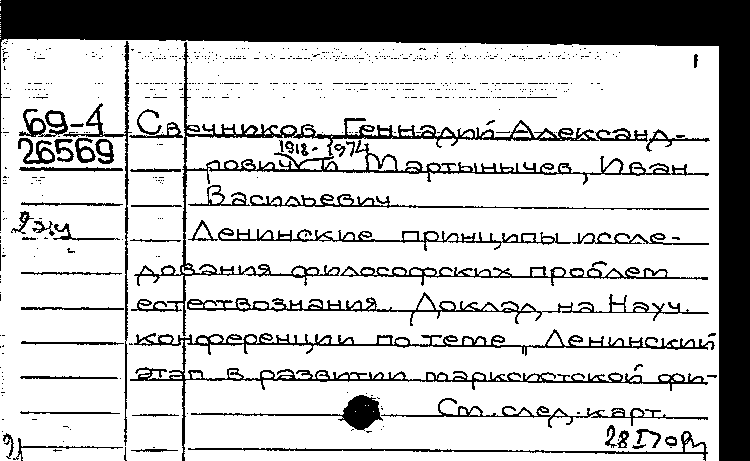 1
69-4
26569
Свечников, Геннадий Александ-
1918-1974
рович и Мартынычев, Иван
Васильевич
2 экз
Ленинские принципы иссле-
дования философских проблем
естествознания. Доклад на Науч.
конференции по теме „Ленинский
этап в развитии марксистской фи-
См. след. карт.